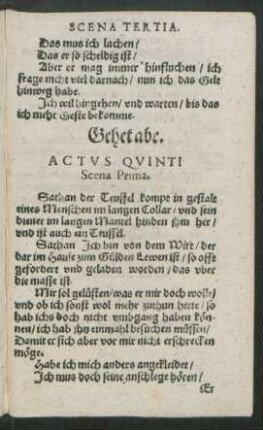 SCENA TERTIA.
Das mus ich lachen/
Das er so scheldig ist/
Aber er mag immer hinfluchen/ ich
frage nicht viel darnach/ nun ich das Gelt
hinweg habe.
Ich wil hingehen/ vnd warten/ bis das
ich mehr Geste bekomme.
Gehet abe.
ACTVS QVINTI
Scena Prima.
Sathan der Teuffel kompt in gestalt
eines Menschen im langen Collar/ vnd sein
diener im langen Mantel hinden jhm her/
vnd ist auch ein Teuffel.
Sathan Ich bin von dem Wirt/ der
dar im Hause zum Gülden Lewen ist/ so offt
gefordert vnd geladen worden/ das vber
die masse ist.
Mir sol gelüsten/ was er mir doch wolle/
vnd ob ich sonst wol mehr zuthun hette/ so
hab ichs doch nicht vmbgang haben kön-
nen/ ich hab jhn einmahl besuchen müssen/
Damit er sich aber vor mir nicht erschrecken
möge.
Habe ich mich anders angekleidet/
Ich mus doch seine anschlege hören/
Er